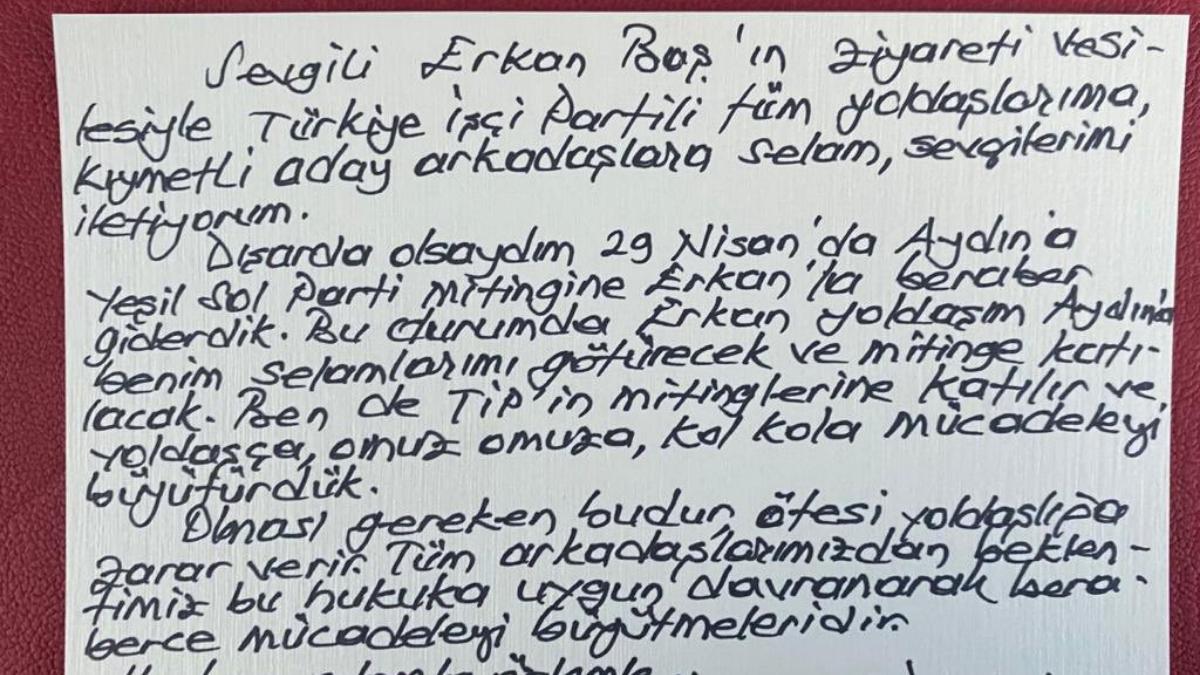 Sevgili Erkan Baş'ın ziyareti vesi-
lesiyle Türkiye İşçi Partili tüm yoldaşlarıma,
kıymetli aday arkadaşlara selam, sevgilerimi
iletiyorum.
Dışarda olsaydım 29 Nisan'da Aydın'a
Yeşil Sol Parti mitingine Erkan'la beraber
giderdik. Bu durumda Erkan yoldaşım Aydın'a
benim selamlarımı götürecek ve mitinge katı-
lacak. Ben de TİP'in mitinglerine katılır ve
yoldaşça, omuz omuza, kol kola mücadeleyi
büyütürdük.
Olması gereken budur, ötesi yoldaşlığa
zarar verir. Tüm arkadaşlarımızdan beklen-
timiz bu hukuka uygun davranarak bera-
berce mücadeleyi büyütmeleridir.